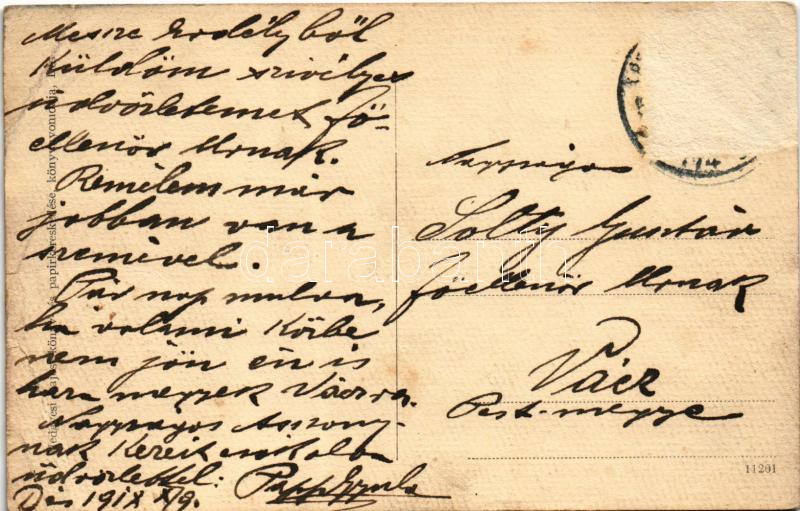 Messze Erdélyből
Küldöm szivélyes
üdvözletemet Fő-
ellenőr Urnak.
Remélem már
jobban van a
szemével.
Pár nap mulva,
ha valami Közbe
nem jön én is
haza megyek Váczra.
Nagyságos Asszony-
nak Kezeit csókolom
üdvözlettel: Papp Gyula
Dés
Nagyságos
Solty Gusztáv
főellenőr Urnak
Vácz
Pest-megye
11201
darabanth